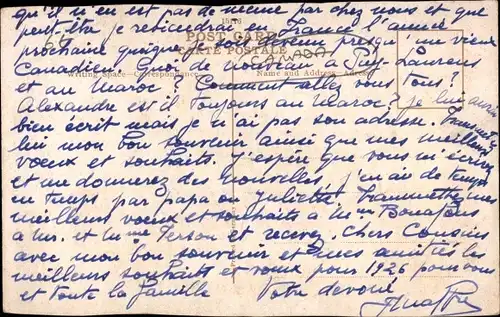 qu'il n'en est pas de même par chez nous et que
peut-être je retournerai en France l'année
POST CARD
prochaine quoique je sois devenu presqu'un vieux
CARTE POSTALE
CANADA
Canadien. Quoi de nouveau à St Laurens
Writing Space - Correspondance
Name and Address - Adresse
et au Maroc? Comment allez vous tous?
Alexandre est il toujours au Maroc? Je lui aurais
bien écrit mais je n'ai pas son adresse. Transmettez
lui mon bon souvenir ainsi que mes meilleurs
voeux et souhaits. J'espère que vous m'écrirez
et me donnerez des nouvelles, j'en ai de temps
en temps par papa ou Juliette. Transmettez mes
meilleurs voeux et souhaits à Mme
à Mr. et Mme Terson et recevez, chers Cousins
avec mon bon souvenir et mes amitiés les
meilleurs souhaits et voeux pour 1926 pour vous
et toute la famille Votre dévoué